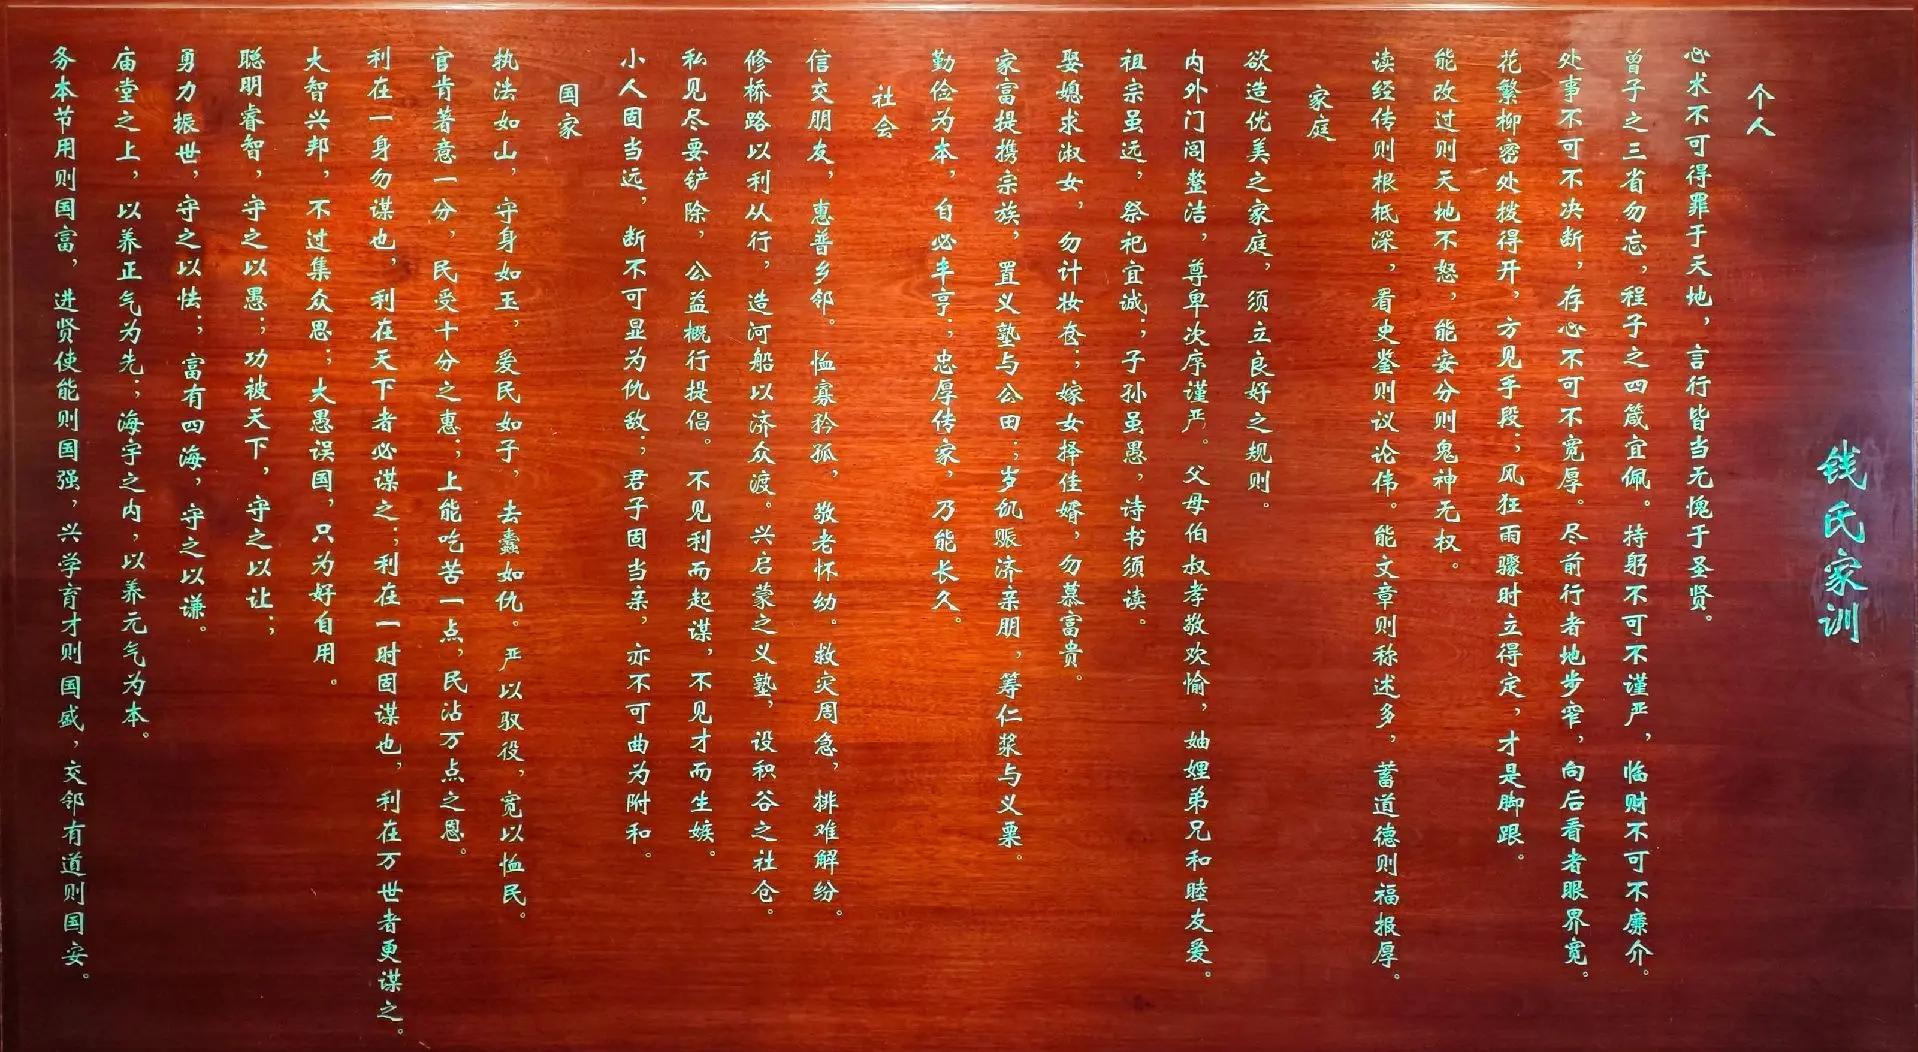 钱氏家训
个人
心求不可得罪于天地，言行皆当无愧于圣贤。
曾子之三省勿忘，程子之四箴宜佩。持躬不可不谨严，临财不可不廉介。
处事不可不决断，存心不可不宽厚。尽前行者地步窄，向后看者眼界宽。
花繁柳密处拨得开，方见手段；风狂雨骤时立得定，才是脚跟。
能改过则天地不怒，能安分则鬼神无权。
读经传则根柢深，看史鉴则议论伟。能文章则称述多，蓄道德则福报厚。
家庭
欲造优美之家庭，须立良好之规则。
内外门闾整洁，尊卑次序谨严。父母伯叔孝敬欢愉，妯娌弟兄和睦友爱。
祖宗虽远，祭祀宜诚；子孙虽愚，诗书须读。
娶媳求淑女，勿计妆奁；嫁女择佳婿，勿慕富贵。
家富提携宗族，置义塾与公田；岁饥赈济亲朋，筹仁浆与义粟。
勤俭为本，自必丰亨；忠厚传家，乃能长久。
社会
信交朋友，惠普乡邻。恤寡矜孤，敬老怀幼。救灾周急，排难解纷。
修桥路以利从行，造河船以济众渡。兴启蒙之义塾，设积谷之社仓。
私见尽要铲除，公益概行提倡。不见利而起谋，不见才而生嫉。
小人固当远，断不可显为仇敌；君子固当亲，亦不可曲为附和。
国家
执法如山，守身如玉，爱民如子，去蠹如仇。严以驭役，宽以恤民。
官肯著意一分，民受十分之惠；上能吃苦一点，民沾万点之恩。
利在一身勿谋也，利在天下者必谋之；利在一时固谋也，利在万世者更谋之。
大智兴邦，不过集众思；大愚误国，只为好自用。
聪明睿智，守之以愚；功被天下，守之以让；
勇力振世，守之以怯；富有四海，守之以谦。
庙堂之上，以养正气为先；海宇之内，以养元气为本。
务本节用则国富，进贤使能则国强，兴学育才则国盛，交邻有道则国安。